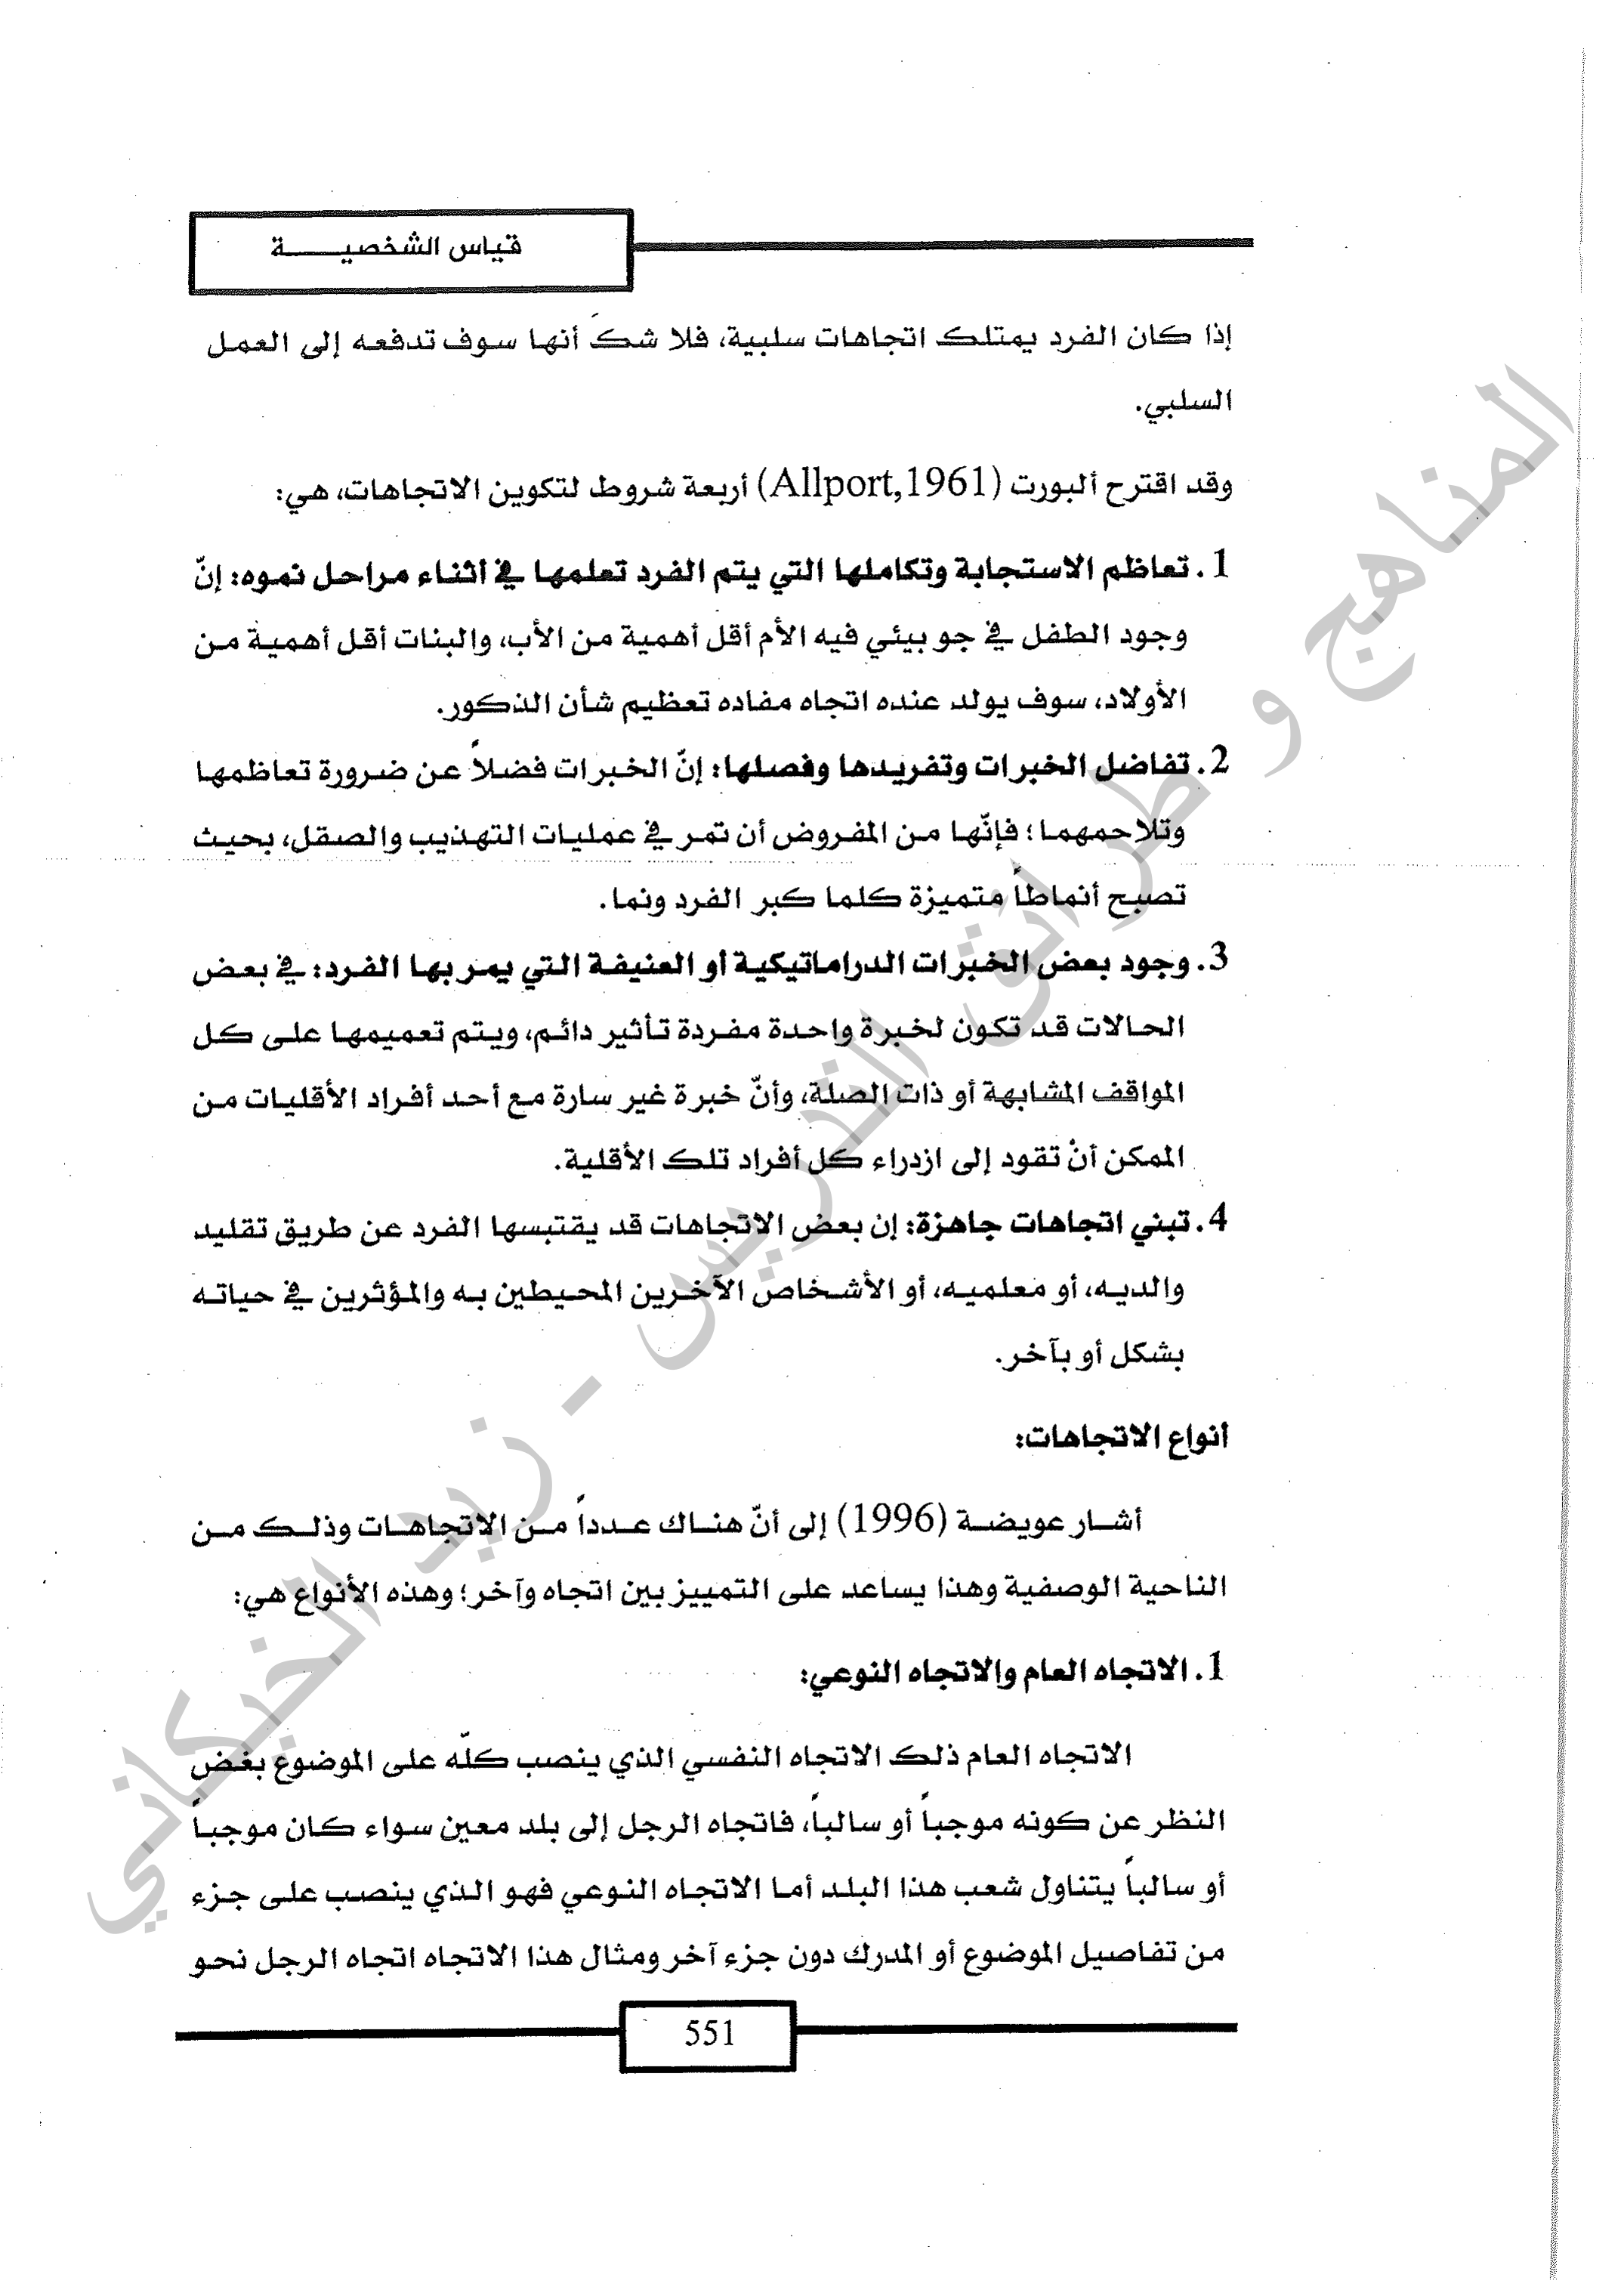 قياس الشخصيـــــــة
إذا كان الفرد يمتلك اتجاهات سلبية، فلا شكَ أنها سوف تدفعه إلى العمل
السلبي.
وقد اقترح ألبورت (Allport,1961) أربعة شروط لتكوين الاتجاهات، هي:
1. تعاظم الاستجابة وتكاملها التي يتم الفرد تعلمها في أثناء مراحل نموه: إنّ
وجود الطفل في جو بيئي فيه الأم أقل أهمية من الأب، والبنات أقل أهمية من
الأولاد، سوف يولد عنده اتجاه مفاده تعظيم شأن الذكور.
2. تفاضل الخبرات وتفريدها وفصلها: إنّ الخبرات فضلاً عن ضرورة تعاظمها
وتلاحمهما؛ فإنّها من المفروض أن تمر في عمليات التهذيب والصقل، بحيث
تصبح أنماطاً متميزة كلما كبر الفرد ونما.
3. وجود بعض الخبرات الدراماتيكية أو العنيفة التي يمر بها الفرد: في بعض
الحالات قد تكون لخبرة واحدة مفردة تأثير دائم، ويتم تعميمها على كل
المواقف المشابهة أو ذات الصلة، وأنّ خبرة غير سارة مع أحد أفراد الأقليات من
الممكن أنْ تقود إلى ازدراء كل أفراد تلك الأقلية.
4. تبني اتجاهات جاهزة: إن بعض الاتجاهات قد يقتبسها الفرد عن طريق تقليد
والديه، أو معلميه، أو الأشخاص الآخرين المحيطين به والمؤثرين في حياته
بشكل أو بآخر.
أنواع الاتجاهات:
أشار عويضة (1996) إلى أنّ هناك عدداً من الاتجاهات وذلك من
الناحية الوصفية وهذا يساعد على التمييز بين اتجاه وآخر؛ وهذه الأنواع هي:
1. الاتجاه العام والاتجاه النوعي:
الاتجاه العام ذلك الاتجاه النفسي الذي ينصب كلّه على الموضوع بغض
النظر عن كونه موجباً أو سالباً، فاتجاه الرجل إلى بلد معين سواء كان موجباً
أو سالباً يتناول شعب هذا البلد أما الاتجاه النوعي فهو الذي ينصب على جزء
من تفاصيل الموضوع أو المدرك دون جزء آخر ومثال هذا الاتجاه اتجاه الرجل نحو
551
المناهج و طرائق التدريس - زيد الخيكاني